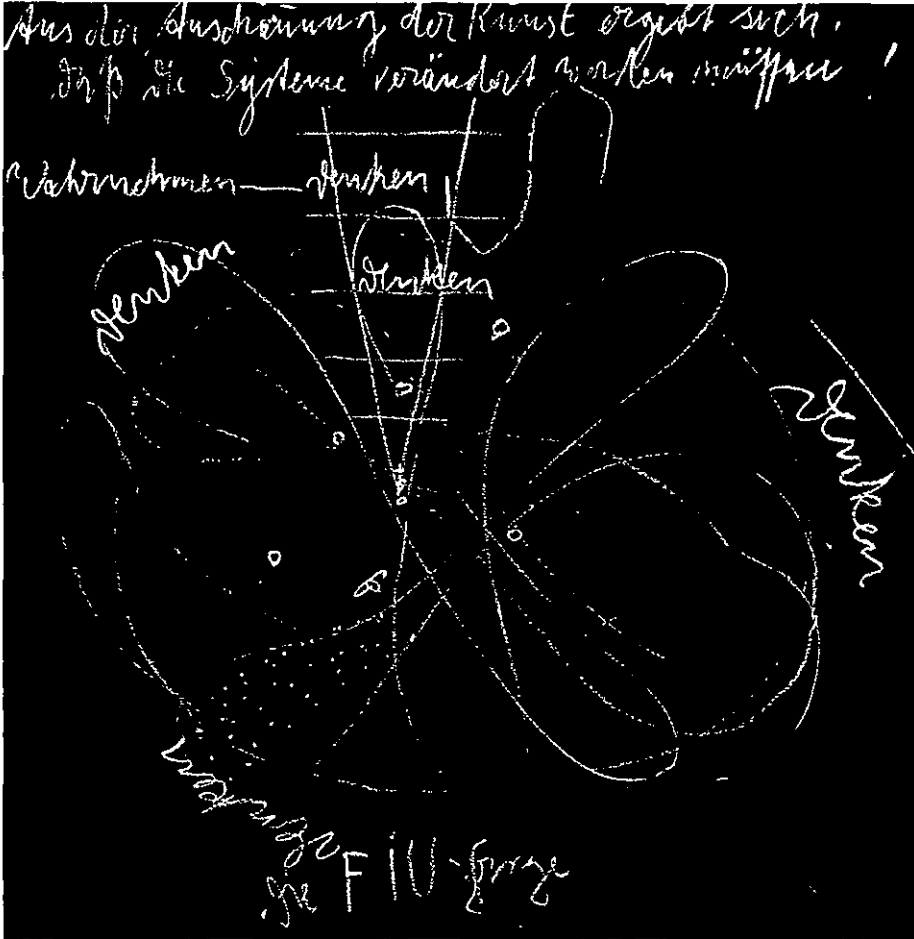 Aus der Anschauung der Kunst ergibt sich,
daß die Systeme verändert werden müssen!
Wahrnehmen — Denken
Denken
Denken
Denken
Denken
die FIU-